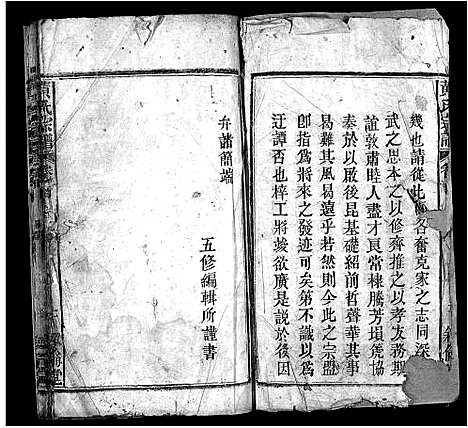 幾也請從此而各奮克家之志同深
武之思本之以修齊推之以孝友務期
誼敦肅睦人盡才良常棣騰芳塤箎協
奏於以啟後昆基礎紹前哲聲華其事
曷難其風易遠乎若然則今此之宗盟
即指為將來之發迹可矣第不識以為
迂譚否也梓工將竣欲廣是說於後因
弁諸簡端
五修編輯所謹書
氏宗譜